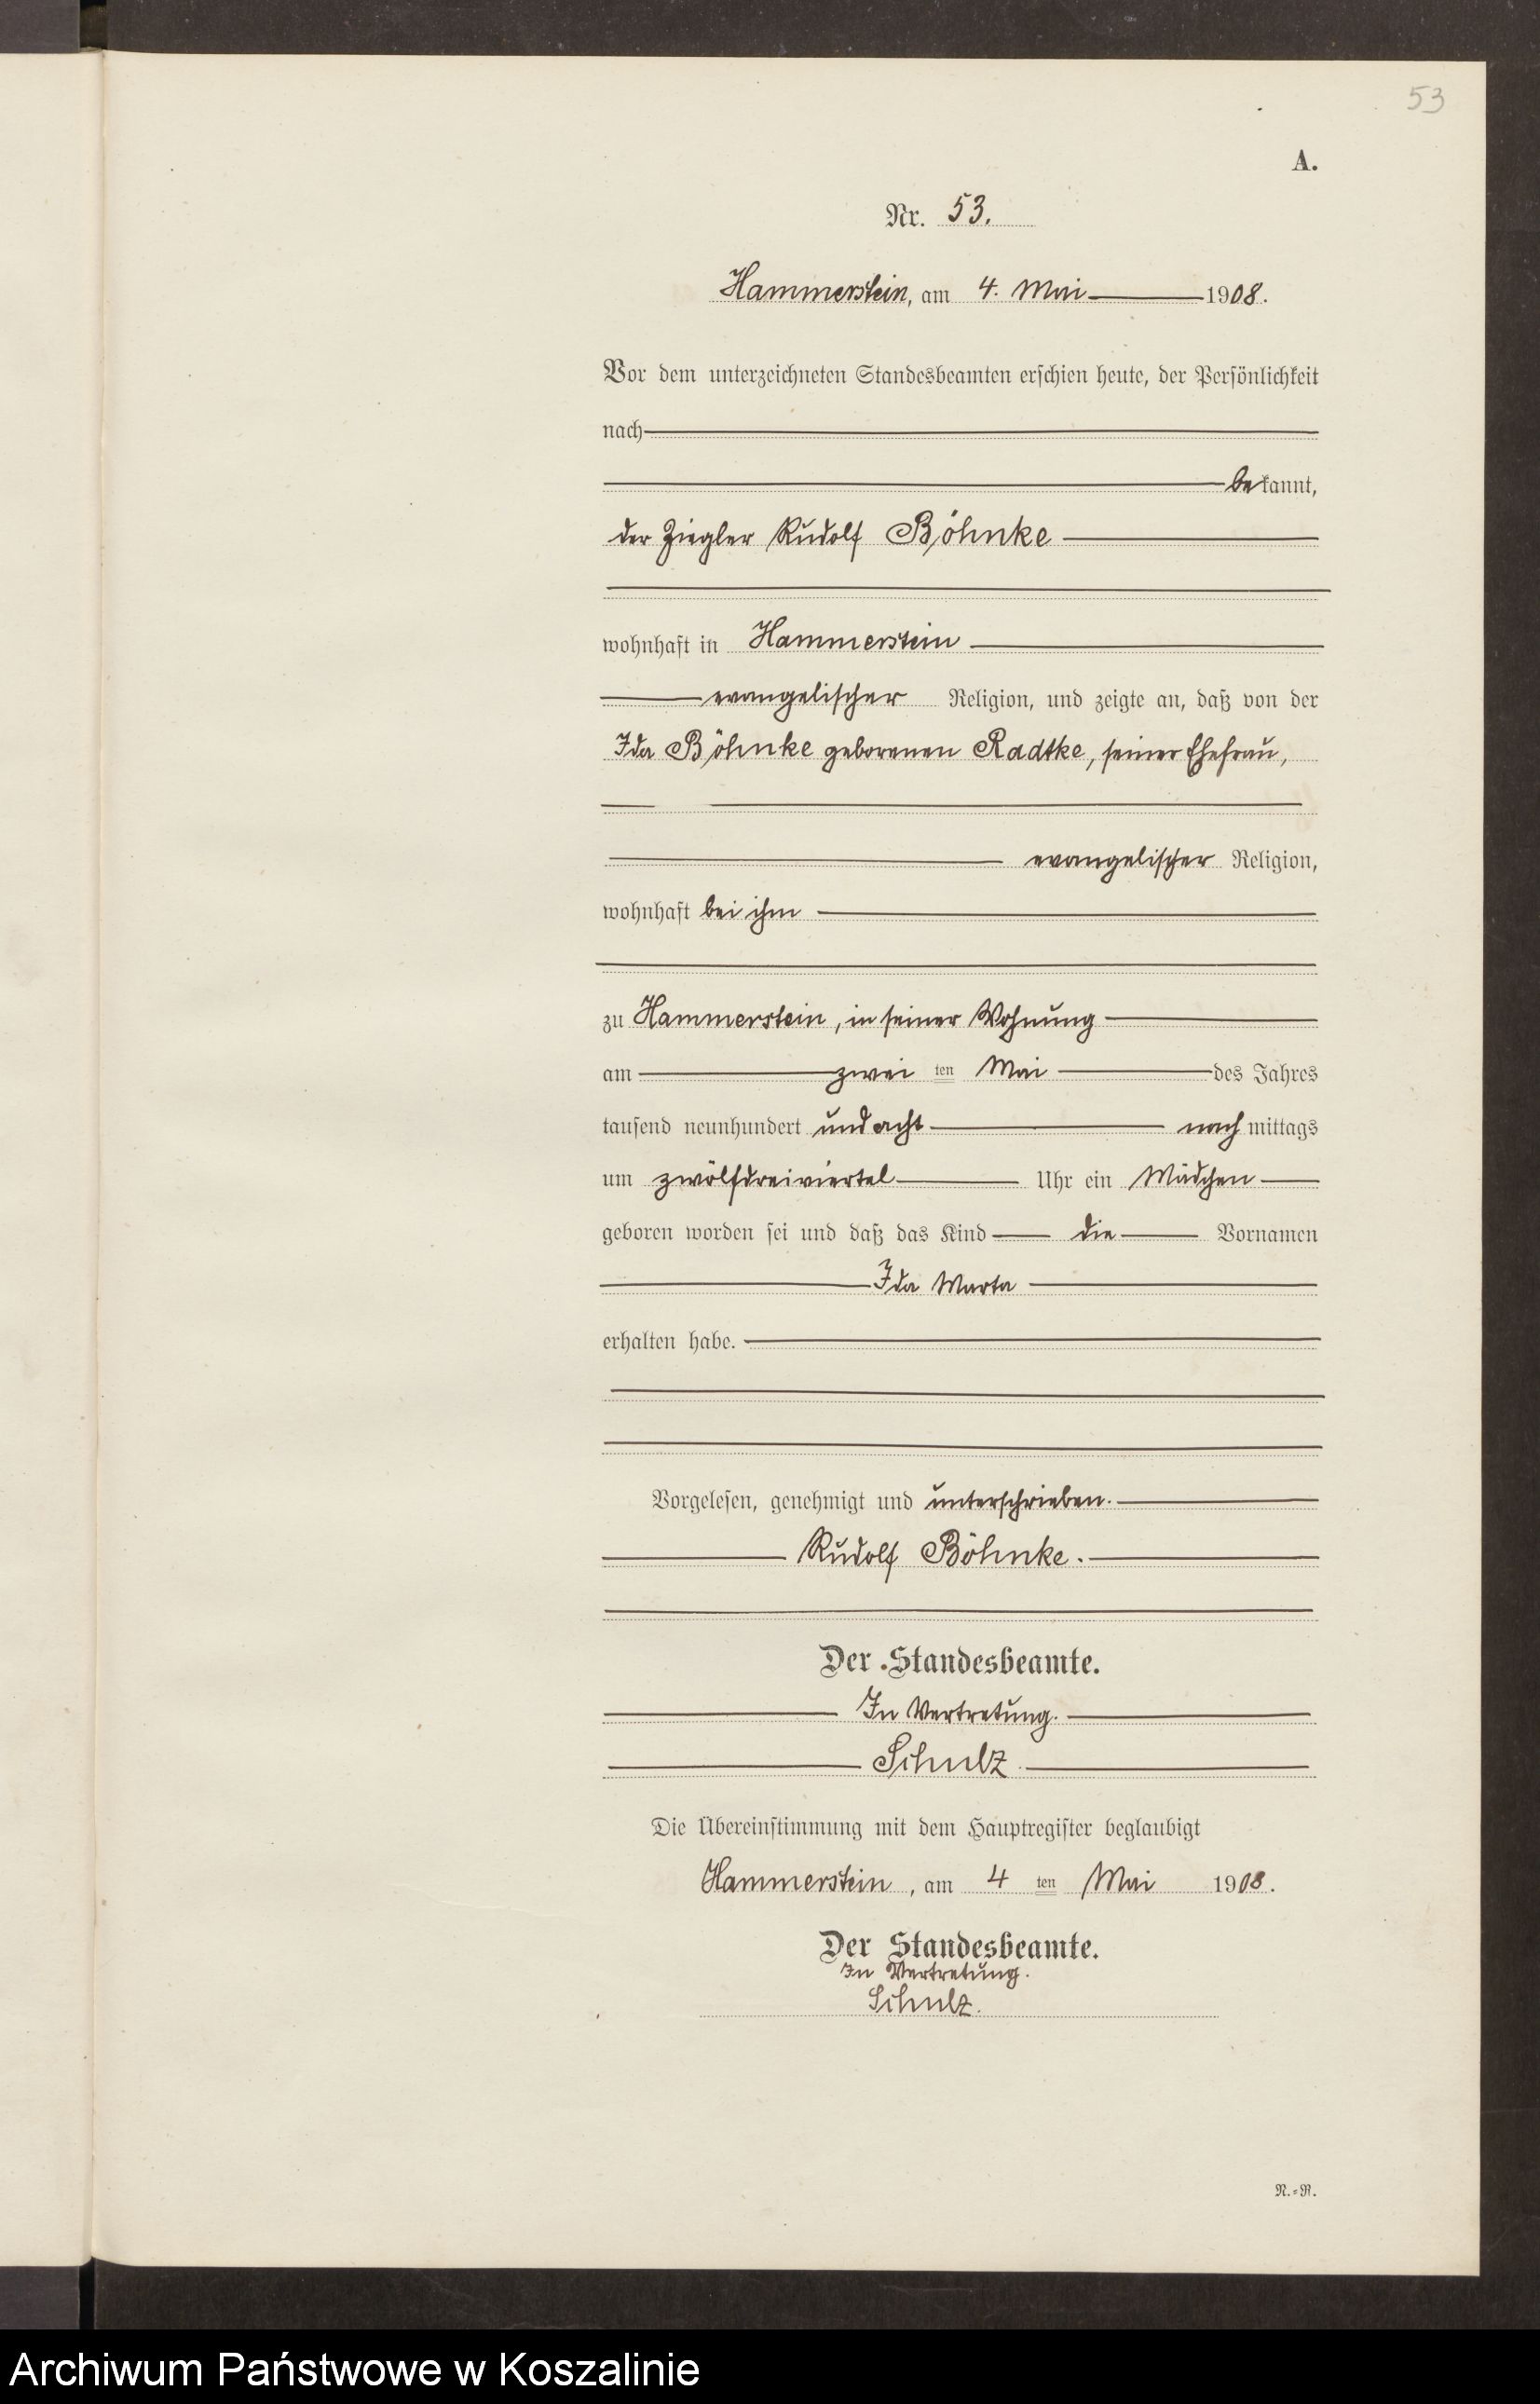 53
A.
Nr. 53.
Hammerstein, am 4. Mai 1908.
Vor dem unterzeichneten Standesbeamten erschien heute, der Persönlichkeit
nach
bekannt,
der Ziegler Rudolf Böhnke
wohnhaft in Hammerstein
evangelischer Religion, und zeigte an, daß von der
Ida Böhnke geborenen Radtke, seiner Ehefrau,
evangelischer Religion,
wohnhaft bei ihm
zu Hammerstein, in seiner Wohnung
am zwei ten Mai des Jahres
tausend neunhundert und acht nach mittags
um zwölfdreiviertel Uhr ein Mädchen
geboren worden sei und daß das Kind die Vornamen
Ida Marta
erhalten habe.
Vorgelesen, genehmigt und unterschrieben.
Rudolf Böhnke.
Der Standesbeamte.
In Vertretung.
Schulz.
Die Übereinstimmung mit dem Hauptregister beglaubigt
Hammerstein, am 4 ten Mai 1908.
Der Standesbeamte.
In Vertretung.
Schulz.
N.=R.
Archiwum Państwowe w Koszalinie